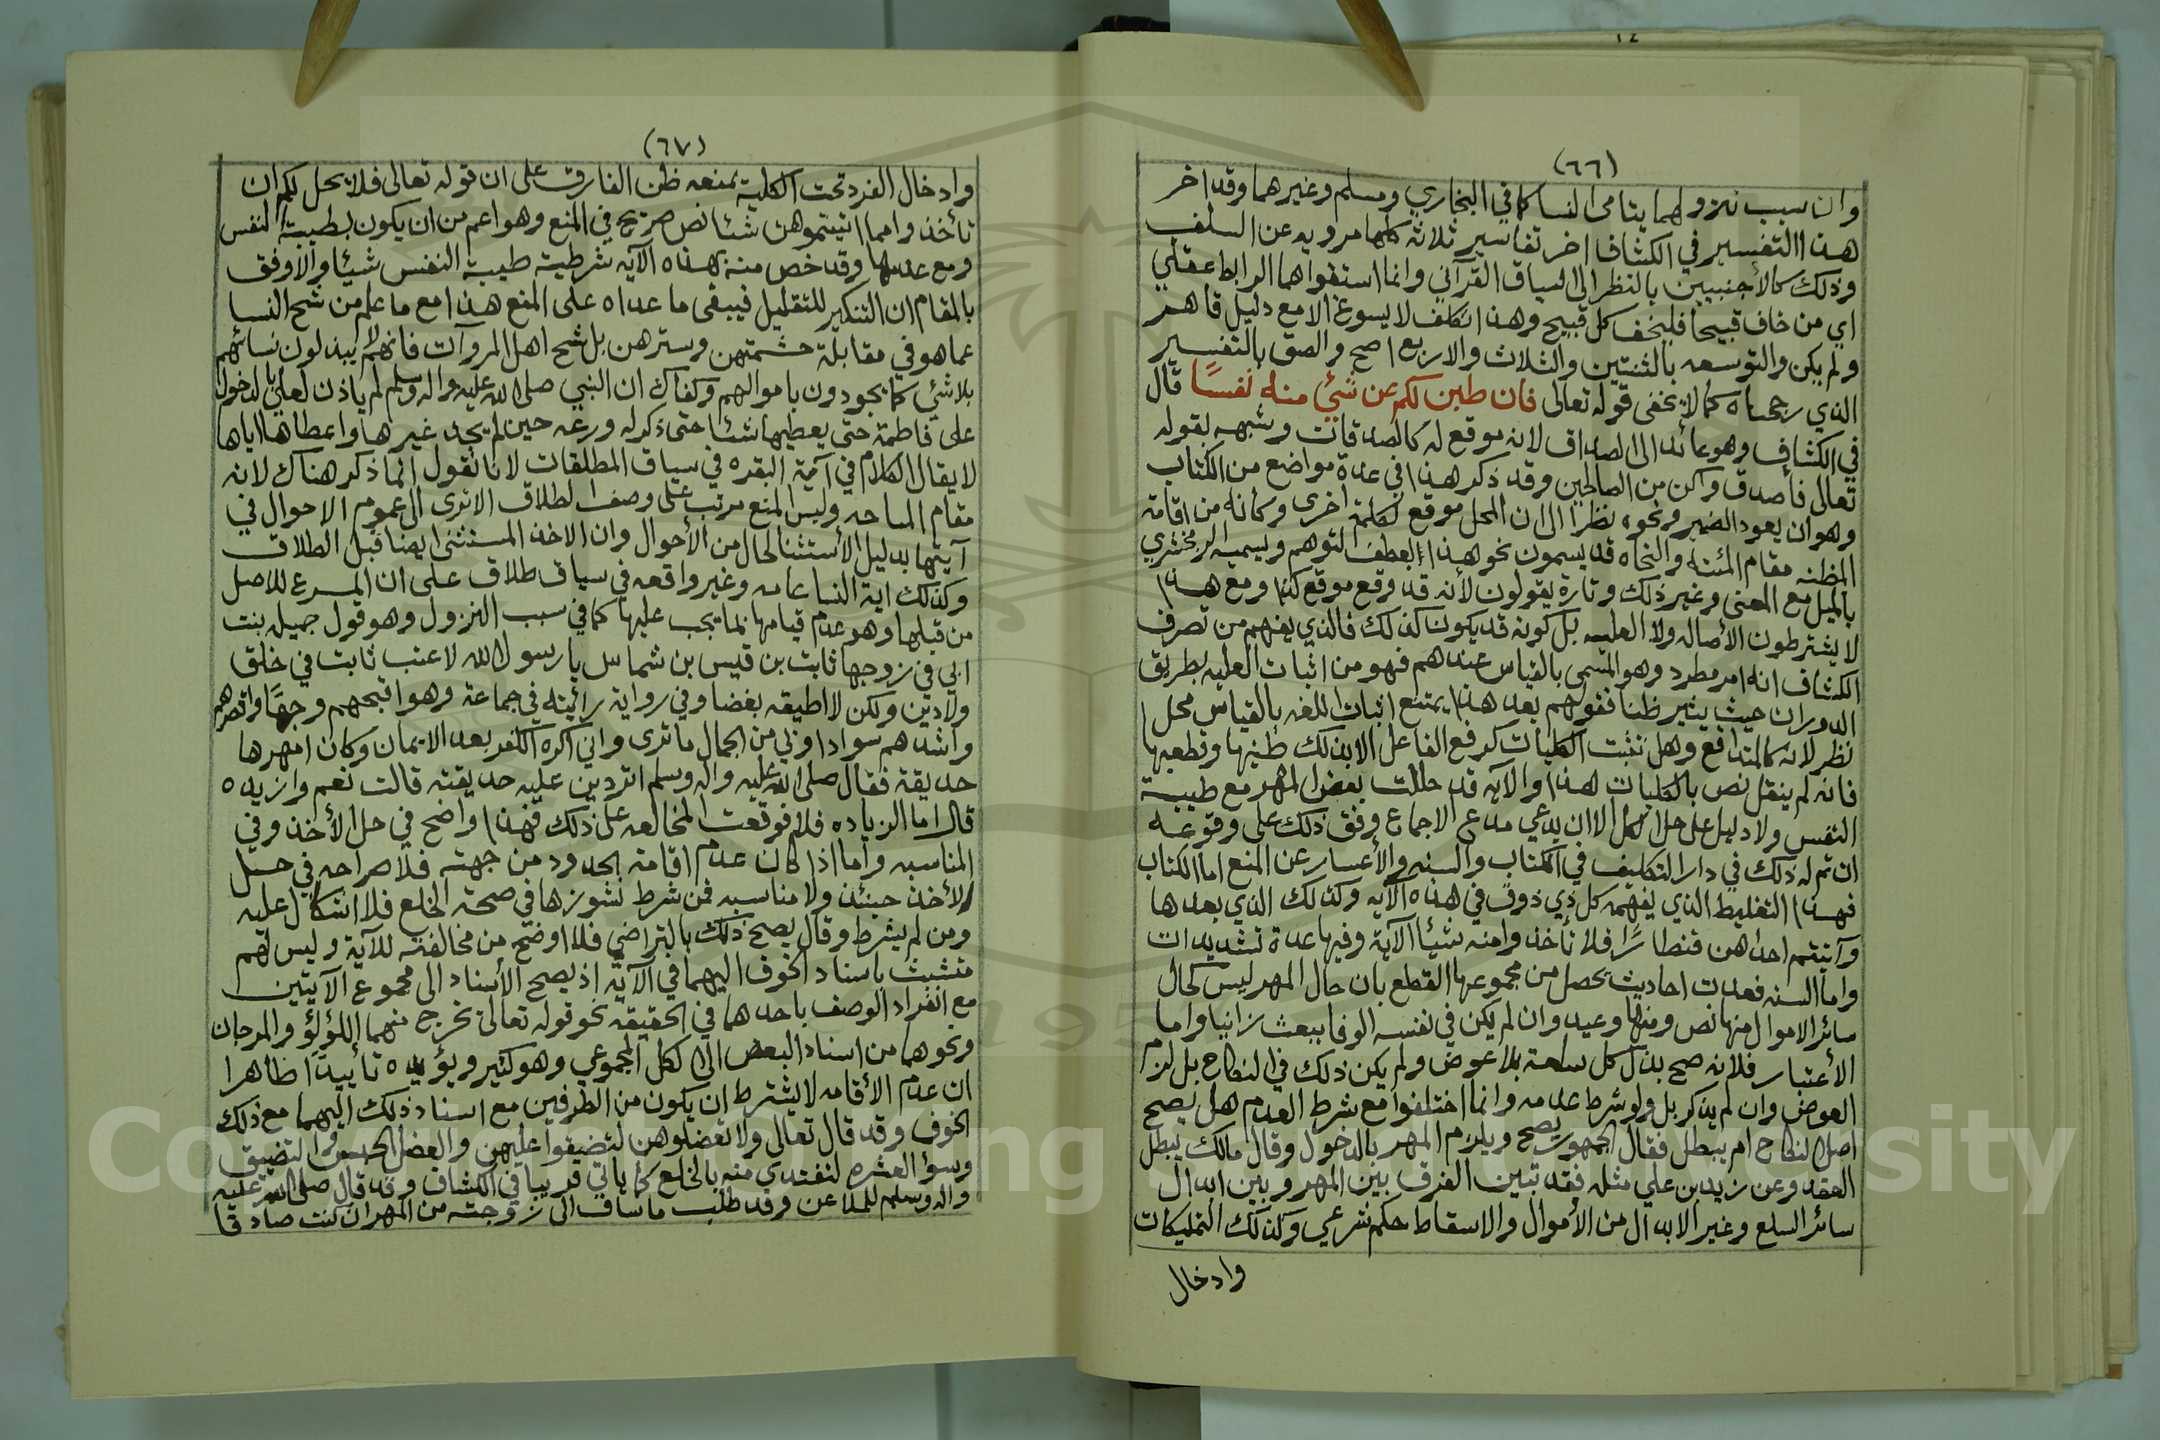 (٦٦)
وان سبب نزولهما يتامى النسا كما في البخاري ومسلم وغيرهما وقد اخر
هذا التفسير في الكشاف اخر تفاسير ثلاثة كلها مرويه عن السلف
وذلك كالأجنبيين بالنظر الى السياق القرآني وانما استفواهما الرابط عقلي
اي من خاف قبيحا فليخف كل قبيح وهذا تكلف لا يسوغ الا مع دليل قاهر
ولم يكن والتوسعه بالثنتين والثلاث والاربع اصح والصق بالتفسير
الذي رجحناه كما لا يخفى قوله تعالى فان طبن لكم عن شئي منه نفسًا قال
في الكشاف وهو عائد الى الصداق لانه موقع له كالصدقات وشبهه بقوله
تعالى فأصدق وأكن من الصالحين وقد ذكر هذا في عدة مواضع من الكتاب
وهو ان يعود الضمير ونحوه نظرا الى ان المحل موقع لكلمة اخرى وكأنه من اقامة
المظنه مقام المئنه والنحاه قد يسمون نحو هذا العطف لتوهم ويسميه الزمخشري
بالميل مع المعنى وغير ذلك وتارة يقولون لأنه قد وقع موقع كذا ومع هذا
لا يشترطون الأصاله ولا الغلبه بل كونه قد يكون كذلك فالذي يفهم من تصرف
الكشاف انه امر مطرد وهو المسمى بالقياس عندهم فهو من اثبات العليه بطريق
الدوران حيث يثير ظنا فقولهم بعد هذا يمتنع اثبات اللغه بالقياس محل
نظر لانه كالمتدافع وهل تثبت الكليات كرفع الفاعل الا بذلك ظنيها وقطعيها
فانه لم ينقل نص بالكليات هذا والآيه قد حللت بعض المهر مع طيبة
النفس ولا دليل على حل الكل الا ان يدعي مدع الاجماع وفق ذلك على وقوعه
ان تم له ذلك في دار التكليف في الكتاب والسنه والأعسار عن المنع اما الكتاب
فهذا التغليظ الذي يفهمه كل ذي ذوق في هذه الآيه وكذلك الذي بعدها
وآتيتم احداهن قنطارًا فلا تأخذوا منه شيئا الآية وفيها عدة تشديدات
واما السنه فعدت احاديث يحصل من مجموعها القطع بان حال المهر ليس كحال
سائر الاموال منها نص ومنها وعيد وان لم يكن في نفسه الوفا يبعث زانيا واما
الأعتبار فلانه صح بذل كل سلعة بلا عوض ولم يكن ذلك في النكاح بل لزم
العوض وان لم يذكر بل ولو شرط عدمه وانما اختلفوا مع شرط العدم هل يصح
اصل النكاح ام يبطل فقال الجمهور يصح ويلزم المهر بالدخول وقال مالك يبطل
العقد وعن زيد بن علي مثله فقد تبين الفرق بين المهر وبين ابدال
سائر السلع وغير الابدال من الأموال والاسقاط حكم شرعي وكذلك التمليكات
وادخال
(٦٧)
وادخال الفرد تحت الكلية يمنعه ظن الفارق على ان قوله تعالى فلا يحل لكم ان
تأخذوا مما اتيتموهن شئا نص صريح في المنع وهو اعم من ان يكون بطيبة النفس
ومع عدمها وقد خص منه بهذه الآيه شرطية طيبة النفس شيئا والأوفق
بالمقام ان التنكير للتقليل فيبقى ما عداه على المنع هذا مع ما علم من شح النسا
عما هو في مقابلة حشمتهن وسترهن بل شح اهل المروآت فانهم لا يبذلون نسائهم
بلا شئي كما يجودون باموالهم وكفاك ان النبي صلى الله عليه واله وسلم لم يأذن لعلي بالدخول
على فاطمة حتى يعطيها شئا حتى ذكر له ورعه حين لم يجد غيرها واعطاها اياها
لا يقال الكلام في آية البقره في سياق المطلقات لانا نقول انما ذكر هناك لانه
مقام المساحه وليس المنع مرتب على وصف الطلاق الا ترى الى عموم الاحوال في
آيتها بدليل الأستثنا لحال من الأحوال وان الاخذ المستثنى ايضا قبل الطلاق
وكذلك اية النسا عامه وغير واقعه في سياق طلاق على ان المسرع للاصل
من قبلها وهو عدم قيامها بما يجب عليها كما في سبب النزول وهو قول جميله بنت
ابي في زوجها ثابت بن قيس بن شماس يا رسول الله لا عتب ثابت في خلق
ولا دين ولكن لا اطيقه بغضا وفي رواية رأيته في جماعة وهو اقبحهم وجهًا واقصرهم
واشدهم سوادا وبي من الجمال ما ترى واني اكره الكفر بعد الايمان وكان امهرها
حديقة فقال صلى الله عليه واله وسلم اتردين عليه حديقته قالت نعم وازيده
قال اما الزياده فلا فوقعت المخالعه على ذلك فهذا واضح في حل الأخذ وفي
المناسبه واما اذا كان عدم اقامة الحدود من جهته فلا صراحه في حل
الأخذ حينئذ ولا مناسبه فمن شرط نشوزها في صحة الخلع فلا اشكال عليه
ومن لم يشرط وقال يصح ذلك بالتراضي فلا اوضح من مخالفته للآية وليس لهم
متشبث باسناد الخوف اليهما في الآيه اذ يصح الأسناد الى مجموع الآيتين
مع انفراد الوصف باحدهما في الحقيقه نحو قوله تعالى نخرج منهما اللؤلؤ والمرجان
ونحوهما من اسناد البعض الى الكل المجموعي وهو كثير ويؤيده تأييدًا ظاهرا
ان عدم الأقامه لا يشترط ان يكون من الطرفين مع اسناد ذلك اليهما مع ذلك
الخوف وقد قال تعالى ولا تعضلوهن لتضيقوا عليهن والعضل الحبس والتضيق
وسؤ العشره لتفتدي منه بالخلع كما يأتي قريبا في الكشاف وقد قال صلى الله عليه
واله وسلم للملاعن وقد طلب ما ساق الى زوجته من المهر ان كنت صادقا